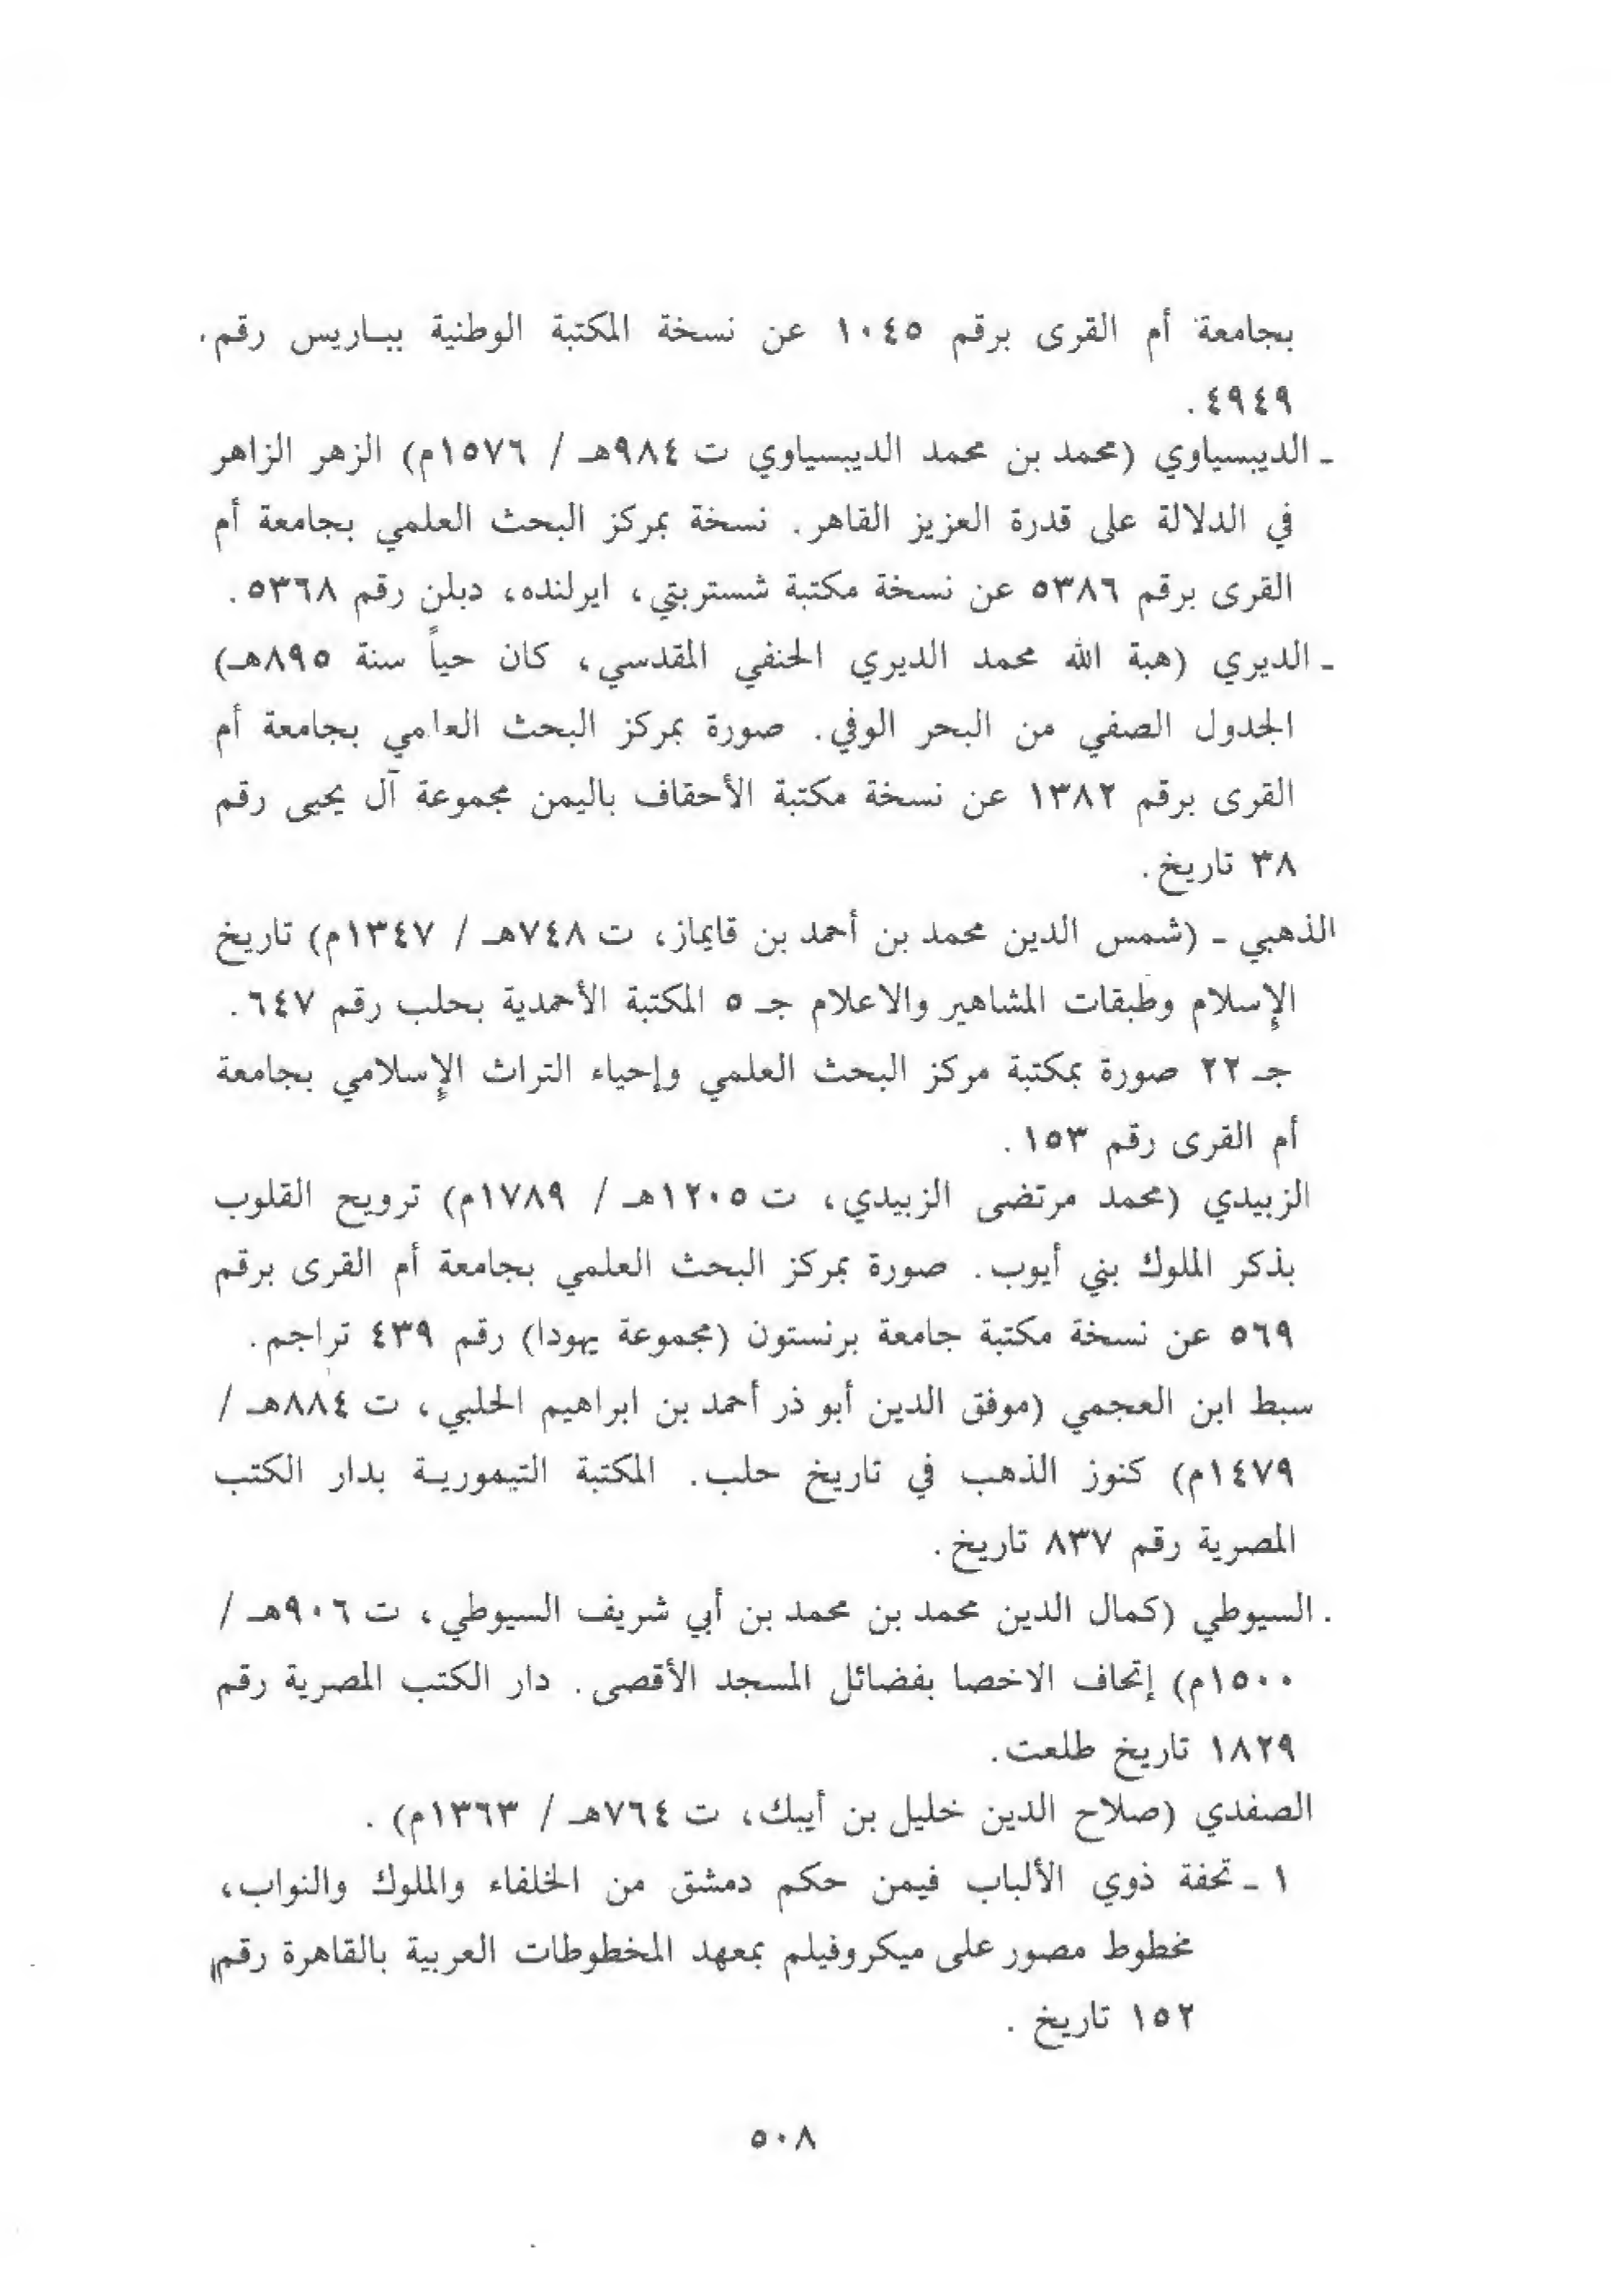 بجامعة أم القرى برقم ١٠٤٥ عن نسخة المكتبة الوطنية ببـاريس رقم.
٤٩٤٩ .
ـ الديبسياوي (محمد بن محمد الديبسياوي ت ٩٨٤هـ / ١٥٧٦م) الزهر الزاهر
في الدلالة على قدرة العزيز القاهر. نسخة بمركز البحث العلمي بجامعة أم
القرى برقم ٥٣٨٦ عن نسخة مكتبة شستربتي، ايرلنده، دبلن رقم ٥٣٦٨ .
ـ الديري (هبة الله محمد الديري الحنفي المقدسي، كان حياً سنة ٨٩٥هـ)
الجدول الصفي من البحر الوفي. صورة بمركز البحث العلمي بجامعة أم
القرى برقم ١٣٨٢ عن نسخة مكتبة الأحقاف باليمن مجموعة آل يحيى رقم
٣٨ تاريخ.
الذهبي ـ (شمس الدين محمد بن أحمد بن قايماز، ت ٧٤٨هـ / ١٣٤٧م) تاريخ
الإسلام وطبقات المشاهير والاعلام جـ ٥ المكتبة الأحمدية بحلب رقم ٦٤٧ .
جـ ٢٢ صورة بمكتبة مركز البحث العلمي وإحياء التراث الإسلامي بجامعة
أم القرى رقم ١٥٣ .
الزبيدي (محمد مرتضى الزبيدي، ت ١٢٠٥هـ / ١٧٨٩م) ترويح القلوب
بذكر الملوك بني أيوب. صورة بمركز البحث العلمي بجامعة أم القرى برقم
٥٦٩ عن نسخة مكتبة جامعة برنستون (مجموعة يهودا) رقم ٤٣٩ تراجم.
سبط ابن العجمي (موفق الدين أبو ذر أحمد بن ابراهيم الحلبي، ت ٨٨٤هـ /
١٤٧٩م) كنوز الذهب في تاريخ حلب. المكتبة التيموريـة بدار الكتب
المصرية رقم ٨٣٧ تاريخ.
. السيوطي (كمال الدين محمد بن محمد بن أبي شريف السيوطي، ت ٩٠٦هـ /
١٥٠٠م) إتحاف الاخصا بفضائل المسجد الأقصى. دار الكتب المصرية رقم
١٨٢٩ تاريخ طلعت.
الصفدي (صلاح الدين خليل بن أيبك، ت ٧٦٤هـ / ١٣٦٣م) .
١ ـ تحفة ذوي الألباب فيمن حكم دمشق من الخلفاء والملوك والنواب،
مخطوط مصور على ميكروفيلم بمعهد المخطوطات العربية بالقاهرة رقم
١٥٢ تاريخ .
٥٠٨